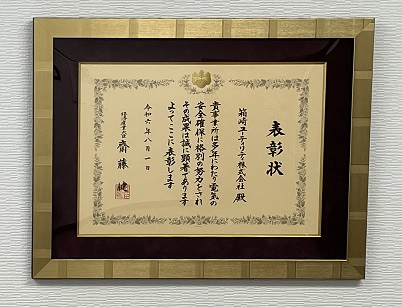 表彰状
箱崎ユーティリティ株式会社 殿
貴事業所は多年にわたり電気の
安全確保に格別の努力をされ
その成果は誠に顕著であります
よってここに表彰します
令和六年八月一日
経済産業大臣 齋藤 健